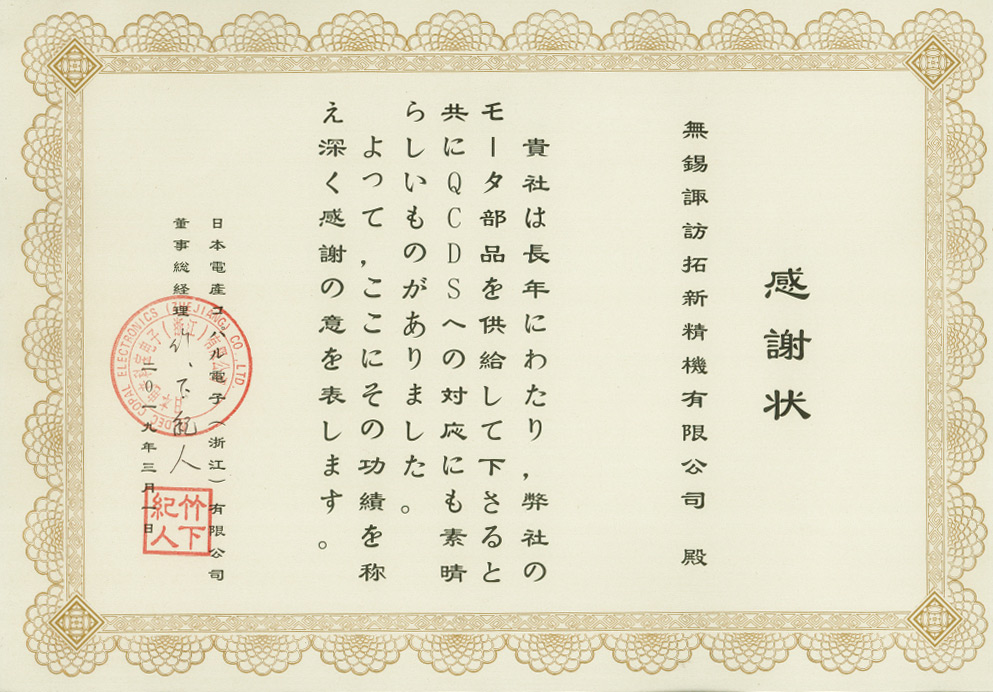 感謝状
無錫諏訪拓新精機有限公司 殿
貴社は長年にわたり,弊社の
モータ部品を供給して下さると
共にQCDSへの対応にも素晴
らしいものがありました。
よって,ここにその功績を称
え深く感謝の意を表します。
日本電産コパル電子(浙江)有限公司
董事総経理 竹下紀人
二〇一九年三月一日
竹下
紀人
NIDEC COPAL ELECTRONICS (ZHEJIANG) CO.,LTD.